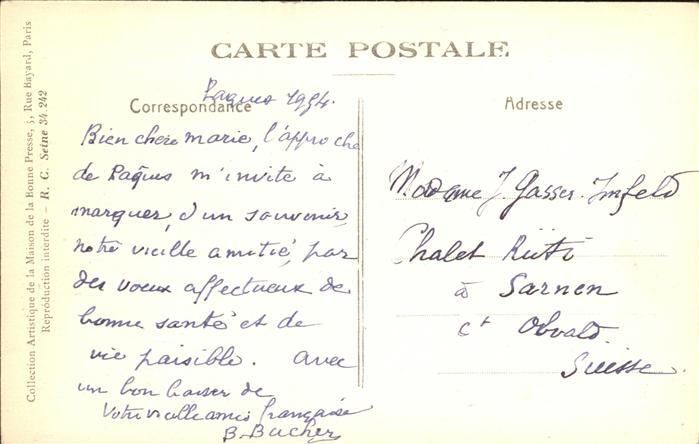 CARTE POSTALE
Correspondance
Paques 1954.
Bien chère marie, l'approche
de Pâques m'invite à
marquer, d'un souvenir,
notre vieille amitié, par
des voeux affectueux de
bonne santé et de
vie paisible. avec
un bon baiser de
Votre vieille amie française
B. Bucher
Adresse
Madame J. Gasser. Imfeld
Chalet Rüti
à Sarnen
Ct Obvald.
Suisse.
Collection Artistique de la Maison de la Bonne Presse, 5, Rue Bayard, Paris
Reproduction interdite - R. C. Seine 34.242